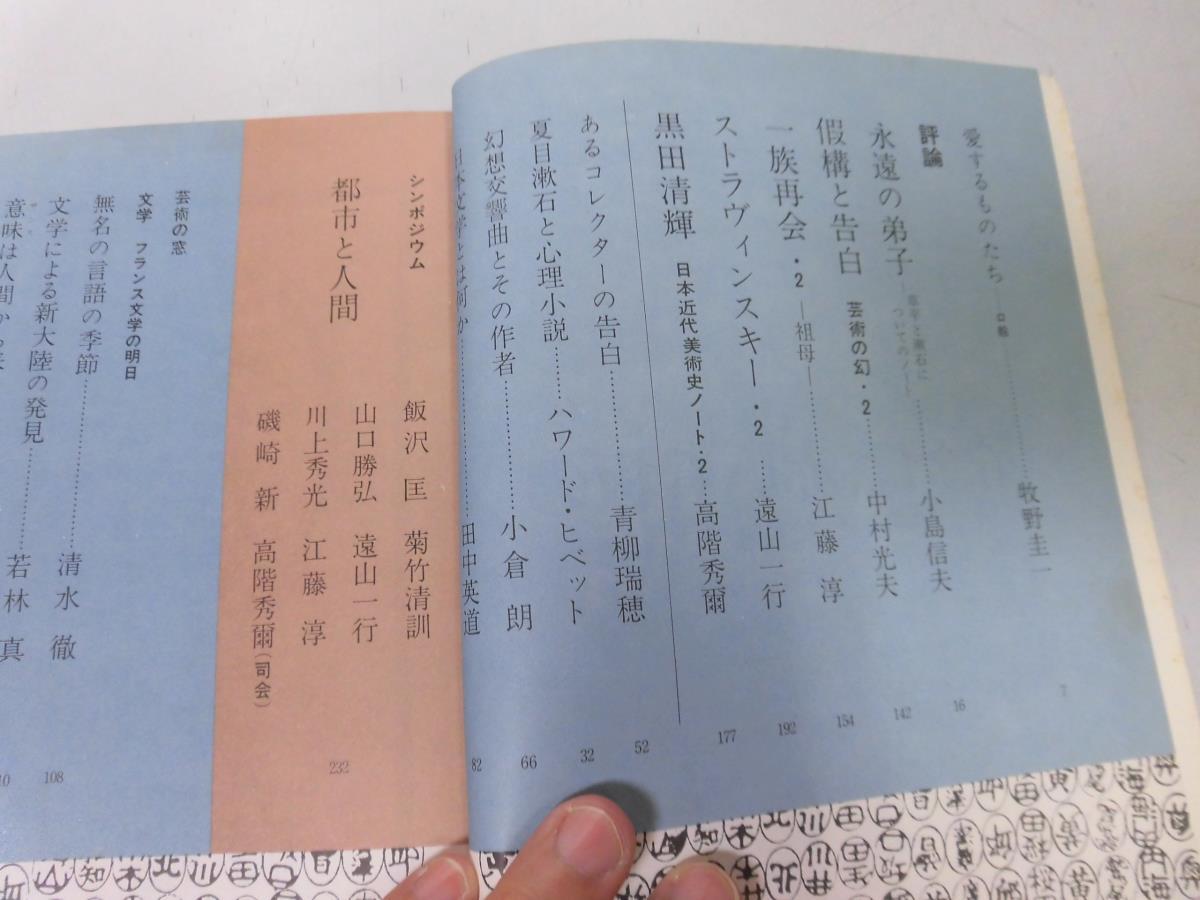 愛するものたち―口絵……牧野圭一 7
評論
永遠の弟子―……小島信夫 16
ついてのノート―
假構と告白 芸術の幻・2……中村光夫 142
一族再会・2 ―祖母―……江藤 淳 154
ストラヴィンスキー・2……遠山一行 192
黒田清輝 日本近代美術史ノート・2……高階秀爾 177
あるコレクターの告白……青柳瑞穂 52
夏目漱石と心理小説……ハワード・ヒベット 32
幻想交響曲とその作者……小倉 朗 66
日本文学とは何か……田中英道 82
シンポジウム
都市と人間 232
飯沢 匡 菊竹清訓
山口勝弘 遠山一行
川上秀光 江藤 淳
磯崎 新 高階秀爾(司会)
芸術の窓
文学 フランス文学の明日
無名の言語の季節……清水 徹 108
文学による新大陸の発見……若林 真
意味は人間から来